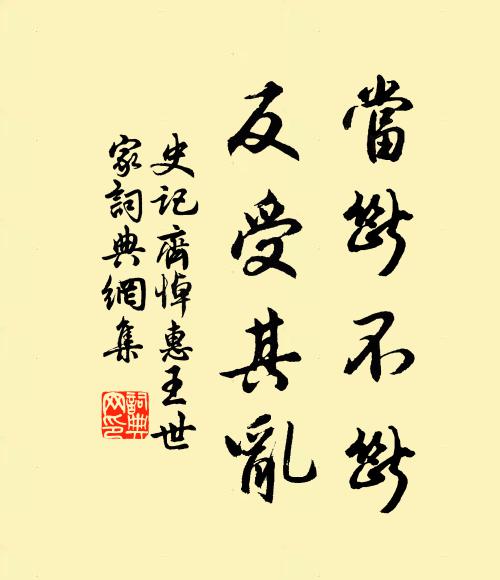 當斷不斷
反受其亂
史記齊悼惠王世
家詞典網集
詞典
网印